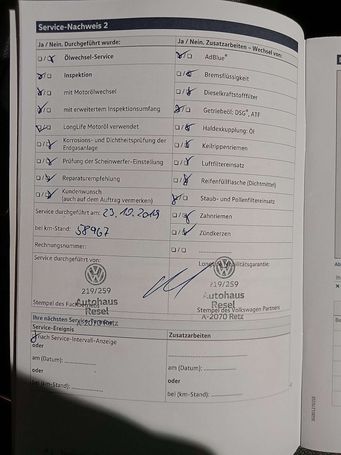 Service-Nachweis 2
Ja / Nein. Durchgeführt wurde:
Ja / Nein. Zusatzarbeiten – Wechsel von:
Ölwechsel-Service
AdBlue®
Inspektion
Bremsflüssigkeit
mit Motorölwechsel
Dieselkraftstofffilter
mit erweitertem Inspektionsumfang
Getriebeöl: DSG®, ATF
LongLife Motoröl verwendet
Haldexkupplung: Öl
Korrosions- und Dichtheitsprüfung der
Erdgasanlage
Keilrippenriemen
Prüfung der Scheinwerfer-Einstellung
Luftfiltereinsatz
Reparaturempfehlung
Reifenfüllflasche (Dichtmittel)
Kundenwunsch
(auch auf dem Auftrag vermerken)
Staub- und Pollenfiltereinsatz
Service durchgeführt am: 23.10.2019
Zahnriemen
bei km-Stand: 58967
Zündkerzen
Rechnungsnummer:
Service durchgeführt von:
219/259
219/259
Stempel des
Autohaus
Resel
A-2070 Retz
Autohaus
Stempel des Volkswagen Partners
Resel
A-2070 Retz
Ihre nächsten Service
Service-Ereignis
Zusatzarbeiten
nach Service-Intervall-Anzeige
oder
am (Datum):
am (Datum):
oder
oder
bei (km-Stand):
bei (km-Stand):